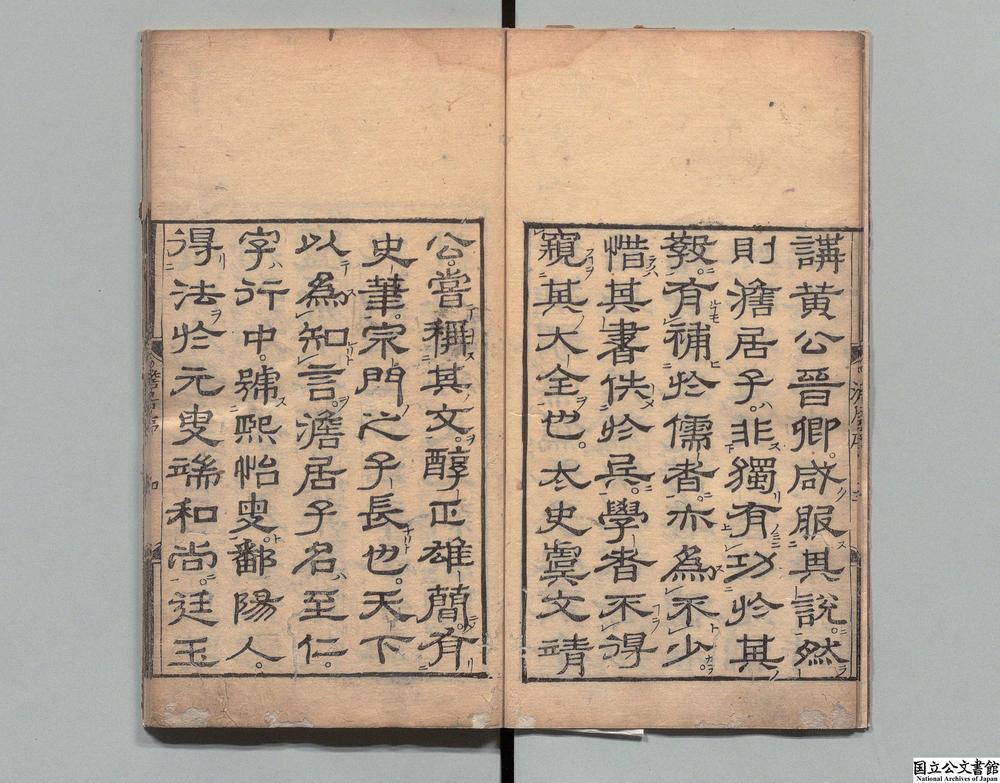 講黄公晉卿咸服其說然
則澹居子非獨有功於其
敎有補於儒者亦爲不少
惜其書佚於兵學者不得
窺其大全也太史虞文靖
公嘗稱其文醇正雄簡有
史筆宗門之子長也天下
以爲知言澹居子名至仁
字行中號熙怡叟鄱陽人
得法於元叟端和尚廷玉
国立公文書館
National Archives of Japan